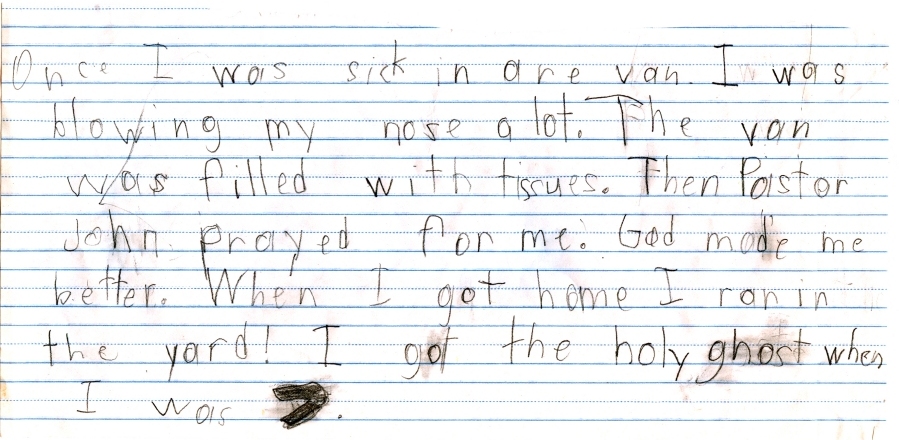 Once I was sick in are van. I was
blowing my nose a lot. The van
was filled with tissues. Then Pastor
John prayed for me. God made me
better. When I got home I ran in
the yard! I got the holy ghost when
I was 7.